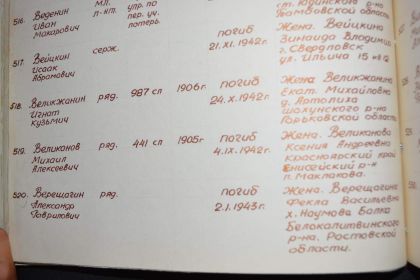 516. Веденин
Иван
Макарович
мл.
л-нт.
упр. по
пер. уч.
потерь.
ст. Юдинского р-на
Тамбовской области
517. Вейцкин
Исаак
Абрамович
серж.
погиб
21.XI.1942г.
Жена. Вейцкина
Зинаида Владимир.
г. Свердловск
ул. Ильича 15 кв 12
518. Великжанин
Игнат
Кузьмич
ряд.
987 сп
1906г.
погиб
24.X.1942г.
Жена Великжанина
Екат. Михайловна
д. Артолиха
шахунского р-на
Горьковской области
519. Великанов
Михаил
Алексеевич
ряд.
441 сп
1905г
погиб
4.IX.1942г.
Жена. Великанова
Ксения Андреевна
Красноярский край
Енисейский р-н
п. Маклакова.
520. Верещагин
Александр
Гаврилович
ряд.
погиб
2.1.1943г.
Жена. Верещагина
Фекла Васильевна
х. Наумова Балка
Белокалитвинского
р-на. Ростовской
области.